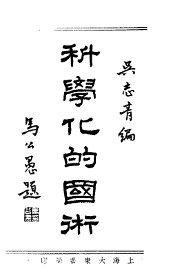 吳志青編
科學化的國術
馬公愚題
上海大東書局印